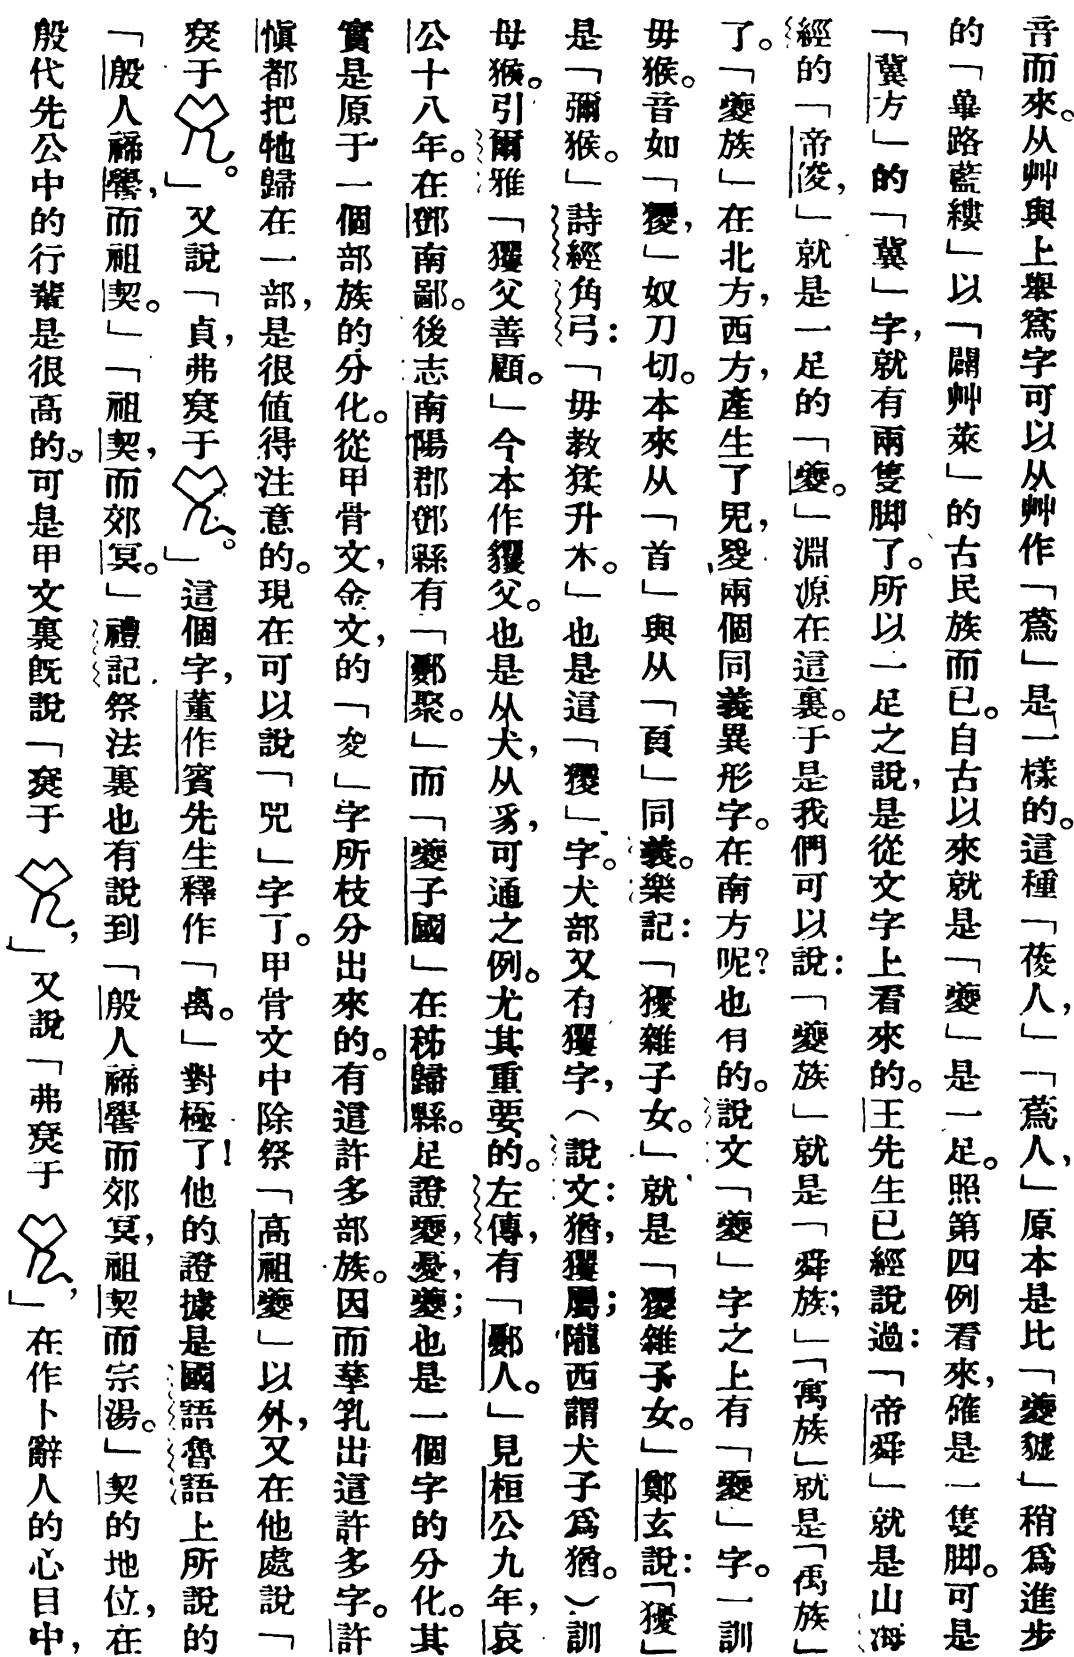 音而來。从艸與上舉寫字可以从艸作「蔿」是一樣的。這種「㑓人，」「蔿人，」原本是比「夔䝞」稍爲進步
的「蓽路藍縷」以「闢艸萊」的古民族而已。自古以來就是「夔」是一足。照第四例看來，確是一隻脚。可是
「冀方」的「冀」字，就有兩隻脚了。所以一足之說，是從文字上看來的。王先生已經說過：「帝舜」就是山海
經的「帝俊，」就是一足的「夔。」淵源在這裏。于是我們可以說：「夔族」就是「舜族；」「寓族」就是「禹族」
了。「夔族」在北方，西方，產生了兕，夒兩個同義異形字。在南方呢？也有的。說文「夔」字之上有「夒」字。一訓
毋猴。音如「獿，」奴刀切。本來从「首」與从「頁」同義。樂記：「獿雜子女。」就是「獿雜子女。」鄭玄說：「獿」
是「彌猴。」詩經角弓：「毋教猱升木。」也是這「獿」字。犬部又有玃字，（說文：猶，玃屬；隴西謂犬子爲猶。）訓
母猴。引爾雅「玃父善顧。」今本作貜父。也是从犬，从豸，可通之例。尤其重要的。左傳，有「鄾人。」見桓公九年，哀
公十八年。在鄧南鄙。後志南陽郡鄧縣有「鄾聚。」而「夔子國」在秭歸縣。足證夒，憂，夔；也是一個字的分化。其
實是原于一個部族的分化。從甲骨文，金文，的「夋」字所枝分出來的。有這許多部族。因而孳乳出這許多字。許
愼都把牠歸在一部，是很値得注意的。現在可以說「兕」字了。甲骨文中除祭「高祖夔」以外，又在他處說「
𡨥于。」又說「貞，弗𡨥于。」這個字，董作賓先生釋作「禼。」對極了！他的證據是國語魯語上所說的
「殷人禘嚳，而祖契。」「祖契，而郊冥。」禮記祭法裏也有說到「殷人禘嚳而郊冥，祖契而宗湯。」契的地位，在
殷代先公中的行輩是很高的。可是甲文裏旣說「𡨥于，」又說「弗𡨥于，」在作卜辭人的心目中，